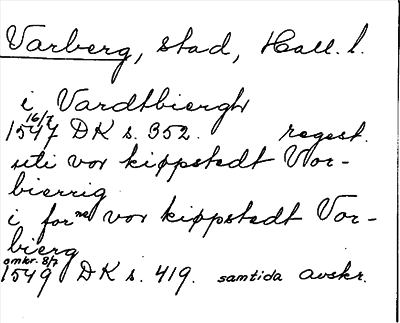 Varberg, stad, Hall. l.
i Vardtbiergh
16/7
1547 DK s. 352. regest.
uti vor kiøpstedt Vor-
bierrig
i forne vor kiøpstedt Vor-
bierg
omkr. 8/7
1549 DK s. 419. samtida avskr.